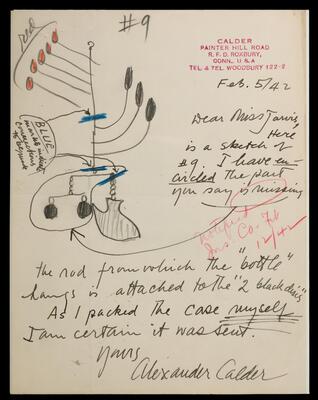 #9
red
CALDER
PAINTER HILL ROAD
R. F. D. ROXBURY,
CONN. U S A
TEL & TEL. WOODBURY 122-2
Feb. 5/42
BLUE
marks indicate
connections
Dear Miss Jarvis,
Here
is a sketch of
#9. I have en-
circled the part
you say is missing
notified
Ins. Co. Feb
12/42
the rod from which the "bottle"
hangs is attached to the "2 black discs"
As I packed the case myself
I am certain it was sent.
Yours
Alexander Calder